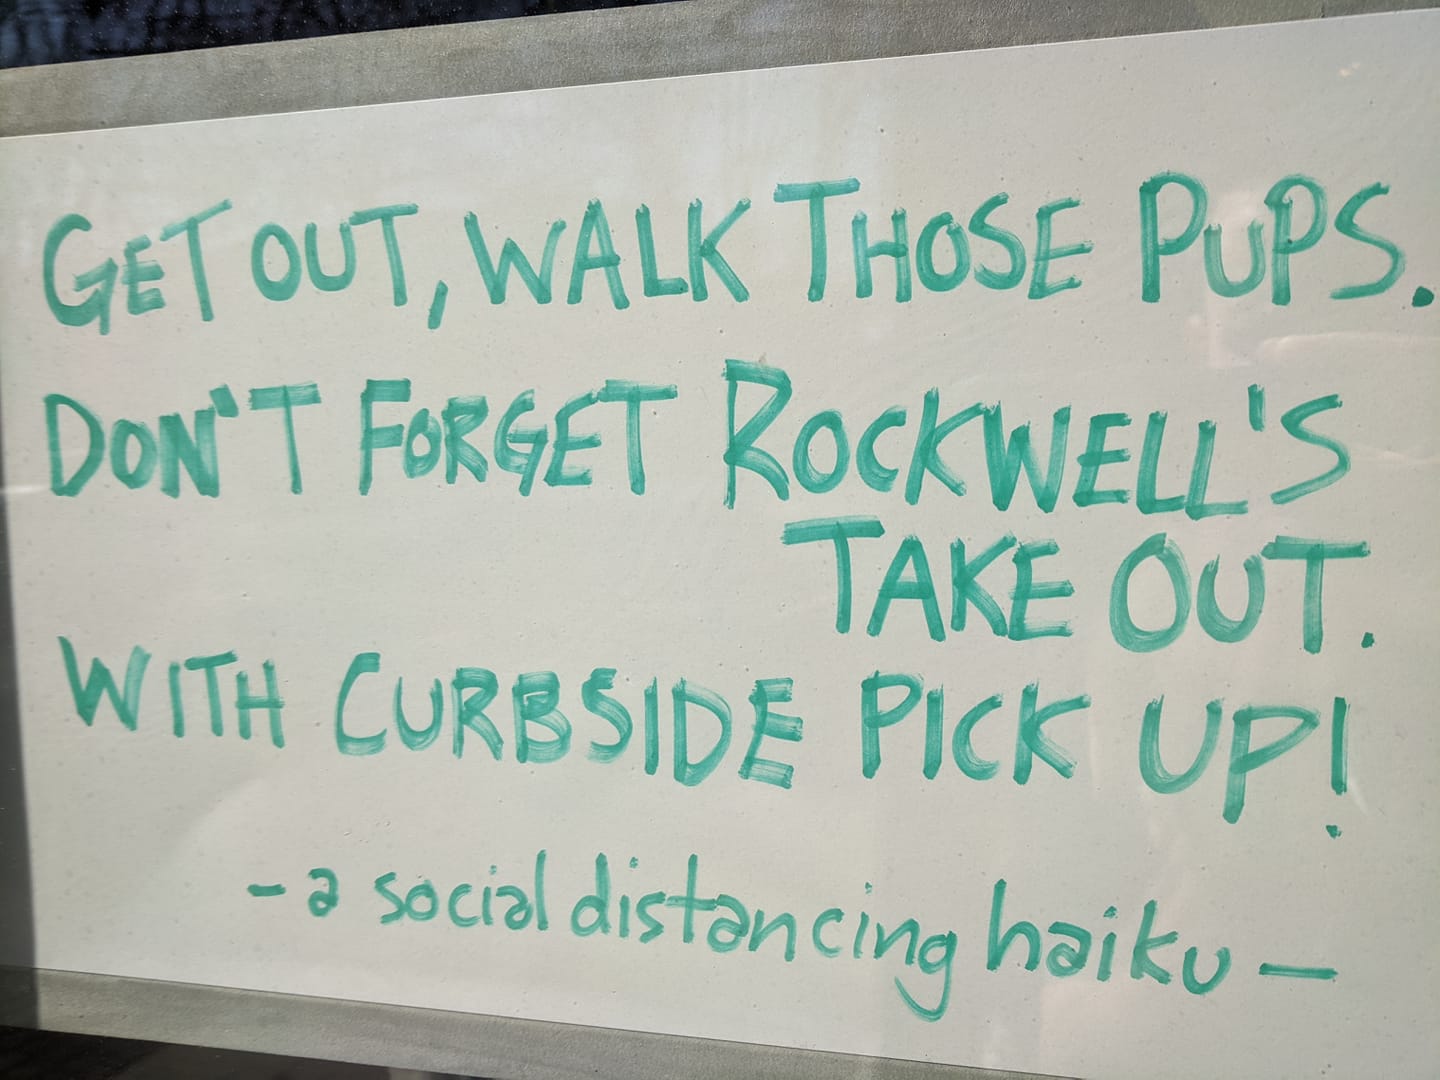 GET OUT, WALK THOSE PUPS.
DON'T FORGET ROCKWELL'S
TAKE OUT.
WITH CURBSIDE PICK UP!
- a social distancing haiku -